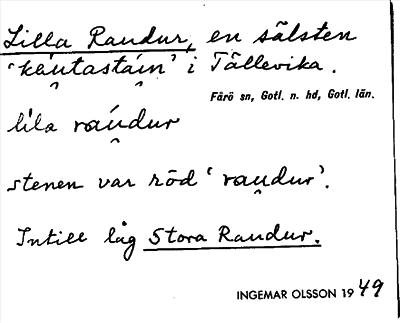 Lilla Raudur, en sälsten
'kǻu̯tastai̯n' i Tällevika.
Fårö sn, Gotl. n. hd, Gotl. län.
lila ráu̯dur
stenen var röd 'rau̯dur'.
Intill låg Stora Raudur.
INGEMAR OLSSON 1949